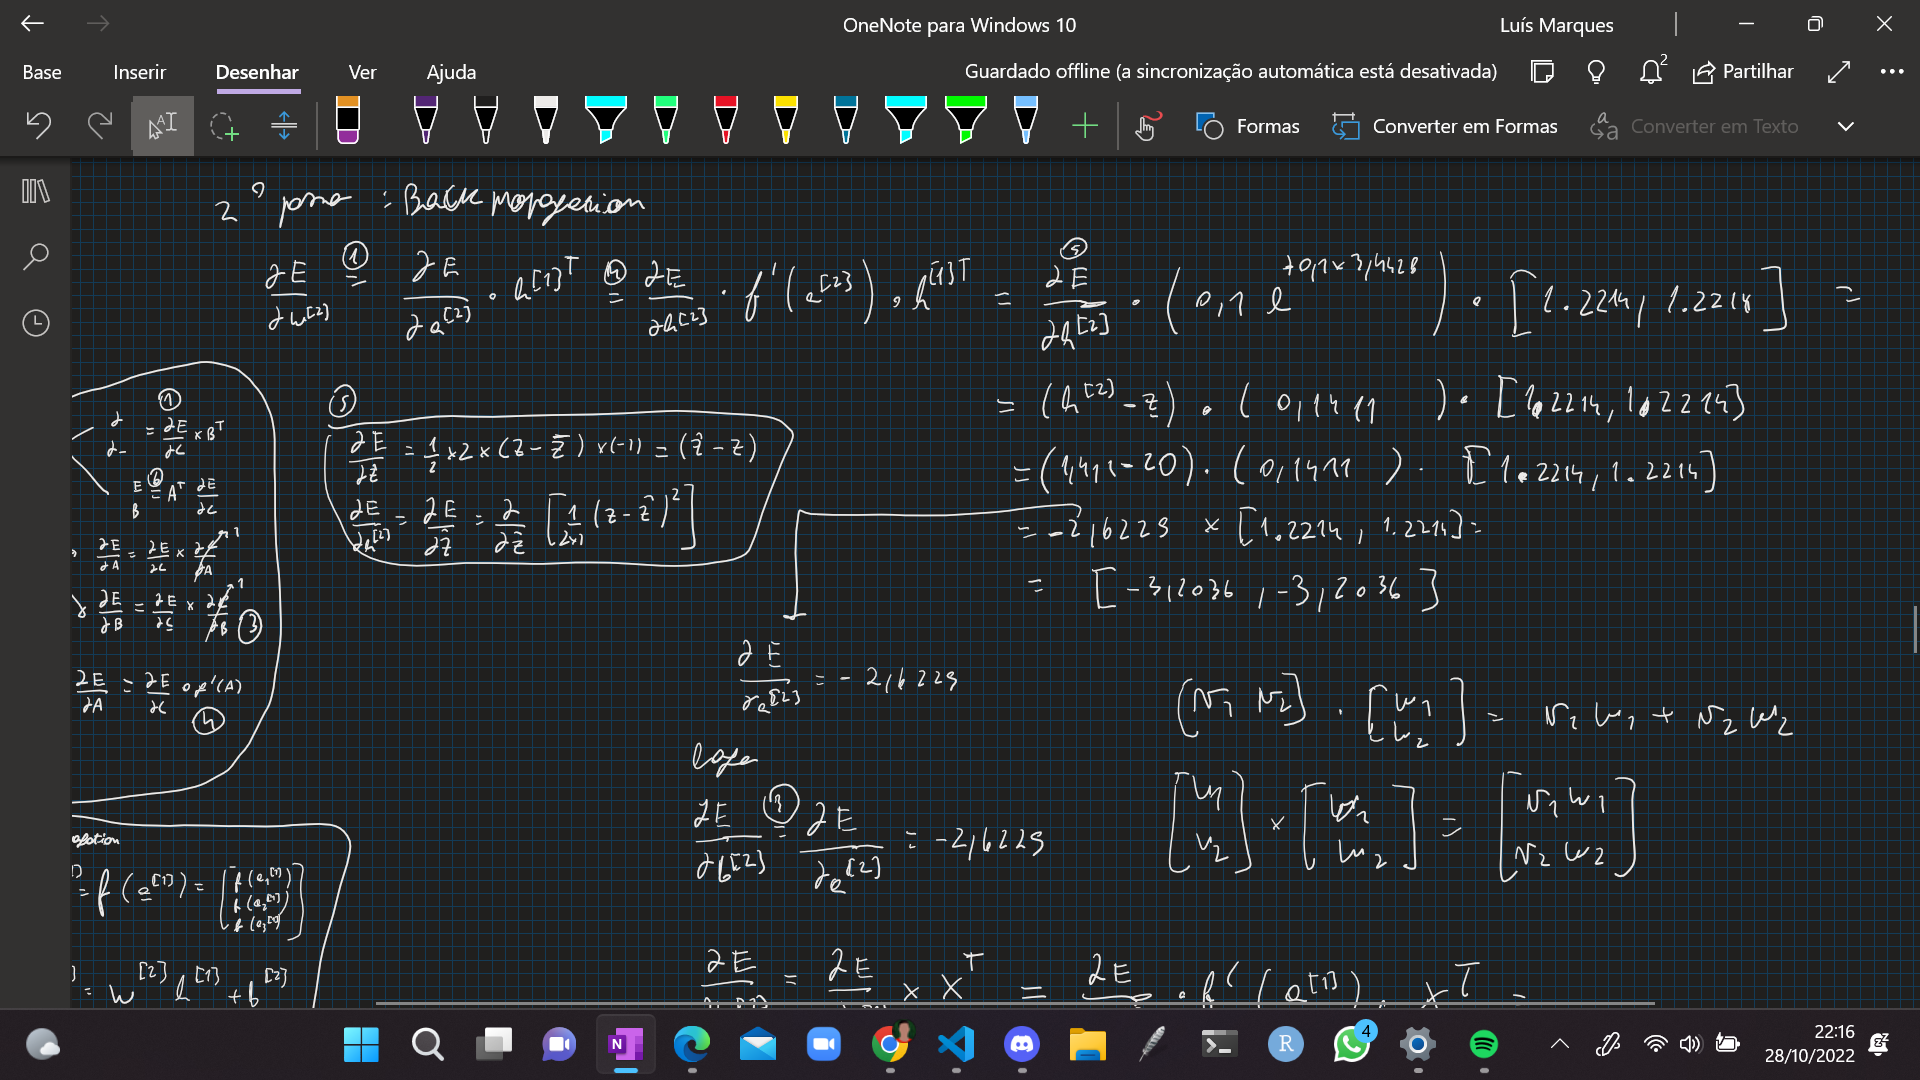 OneNote para Windows 10
Luís Marques
Base Inserir Desenhar Ver Ajuda
Guardado offline (a sincronização automática está desativada)
2
Partilhar
Formas
Converter em Formas
Converter em Texto
2º passo : Back propagation
∂E/∂w^[2] ①= ∂E/∂a^[2] · h^[1]T ④= ∂E/∂h^[2] · f'(a^[2]) · h^[1]T = ⑤ ∂E/∂h^[2] · (0,1 e^{+0,1×3,4428}) · [1.2214, 1.2214] =
= (h^[2] - z) · (0,1411) · [1.2214, 1.2214]
= (1,411-20) · (0,1411) · [1.2214, 1.2214]
= -2,6229 × [1.2214, 1.2214] =
= [-3,2036, -3,2036]
⑤
∂E/∂ẑ = 1/2 × 2 × (z - ẑ) × (-1) = (ẑ - z)
∂E/∂h^[2] = ∂E/∂ẑ = ∂/∂ẑ [1/2×1 (z - ẑ)^2]
①
= ∂E/∂C × B^T
⑥
E/B = A^T ∂E/∂C
∂E/∂A = ∂E/∂C × ∂C/∂A 1
∂E/∂B = ∂E/∂C × ∂C/∂B 1 ③
∂E/∂A = ∂E/∂C ∘ f'(A)
④
∂E/∂a^[2] = -2,6229
(v1 v2) · [w1 w2] = v1 w1 + v2 w2
[v1 v2] × [w1 w2] = [v1 w1 v2 w2]
∂E/∂b^[2] ③= ∂E/∂a^[2] = -2,6229
= f(a^[1]) = [f(a1^[1]) f(a2^[1]) f(a3^[1])]
= w^[2] h^[1] + b^[2]
∂E = ∂E × X^T = ∂E · f'(a^[1]) · X^T =
4
22:16
28/10/2022